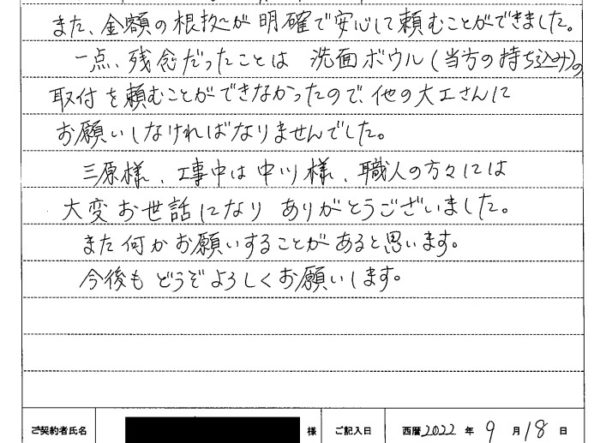 また、金額の根拠が明確で安心して頼むことができました。
一点、残念だったことは 洗面ボウル(当方の持ち込み)の
取付を頼むことができなかったので、他の大工さんに
お願いしなければなりませんでした。
三原様、工事中は中川様、職人の方々には
大変お世話になり ありがとうございました。
また何かお願いすることがあると思います。
今後もどうぞよろしくお願いします。
ご契約者氏名 様 ご記入日 西暦 2022 年 9 月 18 日